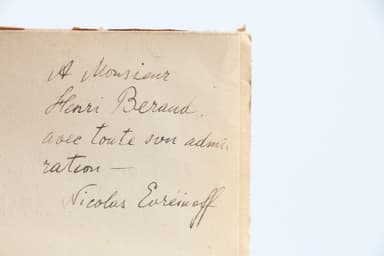 A Monsieur
Henri Beraud.
avec toute son admi-
ration —
Nicolas Evreinoff